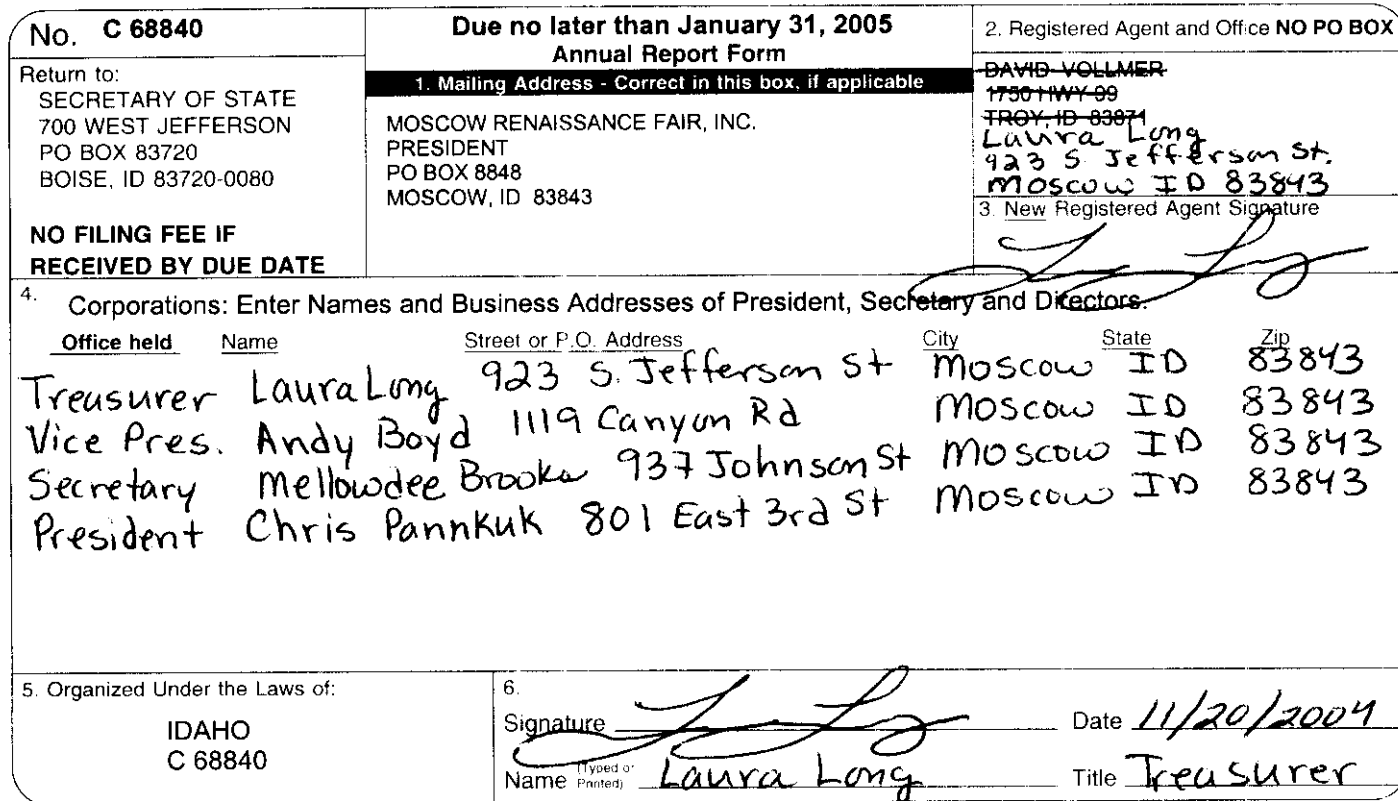 No. C 68840
Return to:
SECRETARY OF STATE
700 WEST JEFFERSON
PO BOX 83720
BOISE, ID 83720-0080
NO FILING FEE IF
RECEIVED BY DUE DATE
Due no later than January 31, 2005
Annual Report Form
1. Mailing Address - Correct in this box, if applicable
MOSCOW RENAISSANCE FAIR, INC.
PRESIDENT
PO BOX 8848
MOSCOW, ID 83843
2. Registered Agent and Office NO PO BOX
DAVID VOLLMER
1750 HWY 99
TROY, ID 83871
Laura Long
923 S Jefferson St.
Moscow ID 83843
3. New Registered Agent Signature
4. Corporations: Enter Names and Business Addresses of President, Secretary and Directors.
Office held Name Street or P.O. Address City State Zip
Treasurer Laura Long 923 S. Jefferson St Moscow ID 83843
Vice Pres. Andy Boyd 1119 Canyon Rd Moscow ID 83843
Secretary Mellowdee Brooks 937 Johnson St Moscow ID 83843
President Chris Pannkuk 801 East 3rd St Moscow ID 83843
5. Organized Under the Laws of:
IDAHO
C 68840
6.
Signature Date 11/20/2004
Name (Typed or Printed) Laura Long Title Treasurer